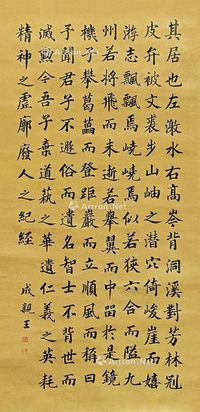 其居也左激水右高岑背洞溪對芳林冠
皮弁被文裘步山岫之潛穴倚峻崖而嬉
游志飄飄焉嶢嶢焉似若狹六合而隘九
州若將飛而未逝若舉翼而中留於是鏡
機子攀葛藟而登距巖而立順風而稱曰
予聞君子不遯俗而遺名智士不背世而
滅勲今吾子棄道藝之華遺仁義之英耗
精神之虛廓廢人之紀經
成親王